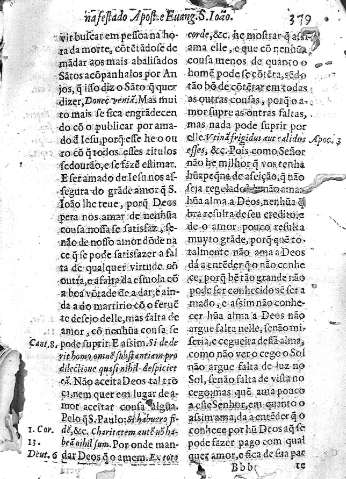 na festado Apost. e Euang. S. Ioão. 379
vir buscar em pessoa na ho-
ra da morte, cõtẽtãdose de
mãdar aos mais abalisados
Sãtos acõpanhalos por An-
jos, q̃ isso diz o Sãto q̃ quer
dizer, Donec veniã. Mas mui
to mais se fica engrãdecen
do cõ o publicar por ama-
do d Iesu, porq̃ esse he o ou
ro cõ q̃ todos esses titulos
se dourão, e se fazẽ estimar.
E ser amado de Iesu nos as-
segura do grãde amor q̃ S.
Ioão lhe teue, porq̃ Deos
pera nos amar de nenhũa
cousa nossa se satisfaz, se-
não de nosso amor dõde na
ce q̃ se pode satisfazer a fal
ta de qualquer virtude. cõ
outra, e a falta da esmola cõ
a boa võtade de a dar, e ain-
da a do martirio cõ o feruẽ
te desejo delle, mas falta de
amor, cõ nenhũa cousa se
Cant. 8. pode suprir. E assim. Si dede
rit homo omnẽ substantiam pro
dilectione quasi nihil despiciet
eã. Não aceita Deos tal tro
ca, nem quer em lugar de a-
mor aceitar cousa algũa.
Pelo q̃ S. Paulo; Si habuero fi-
1. Cor. dẽ, &c. Charitatem autẽ nõ ha-
13. beã nihil sum. Por onde man-
Deut. 6 dar Deos q̃ o amem, Ex toto
corde, &c. he mostrar q̃ assi
ama elle, e que cõ nenhũa
cousa menos de quanto o
homẽ pode se cõtẽta, sẽdo
tão bõ de cõtẽtar em todas
as outras cousas, porq̃ o a-
mor supre as outras faltas,
mas nada pode suprir por
elle. Vtinã frigidus aut calidus Apoc. 3
esses, &c. Pois como Señor
não he milhor q̃ vos tenha
hũa peq̃na de afeição, q̃ não
seja regelado? não ama
hũa alma a Deos, nenhũa q̃
bra resulta de seu credito, e
de o amor pouco resulta
muyto grãde, porq̃ quẽ to-
talmente não ama a Deos
dá a entẽder q̃ o não conhe
ce, porq̃ bẽ tão grande não
pode ser conhecido sẽ ser a
mado, e assim não conhe-
cer hũa alma a Deos não
argue falta nelle, senão mi-
seria, e cegueira dessa alma,
como não ver o cego o Sol
não argue falta de luz no
Sol, senão falta de vista no
cego, mas quẽ ama pouco
a este Senhor, em quanto o
assim ama, da a entẽder q̃ o
conhece por hũ Deos aq̃ se
pode fazer pago com qual
quer amor, e fica de sua par
Bbb te